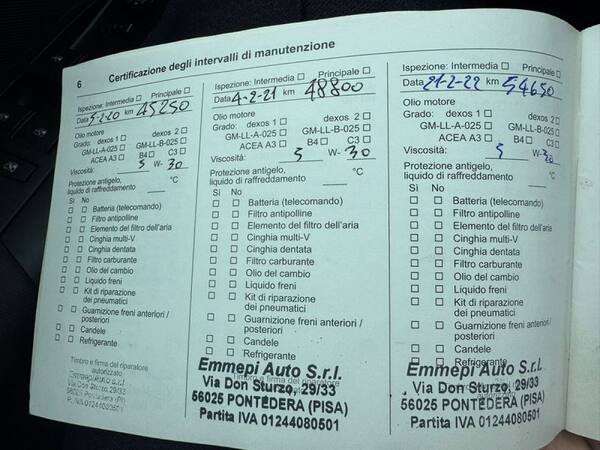 6 Certificazione degli intervalli di manutenzione
Ispezione: Intermedia ☐ Principale ☐
Data 5-2-20 km 45250
Olio motore
Grado: dexos 1 ☐ dexos 2 ☐
GM-LL-A-025 ☐ GM-LL-B-025 ☐
ACEA A3 ☐ B4 ☐ C3 ☐
Viscosità: 5 W- 30
Protezione antigelo,
liquido di raffreddamento °C
Sì No
☐ ☐ Batteria (telecomando)
☐ ☐ Filtro antipolline
☐ ☐ Elemento del filtro dell'aria
☐ ☐ Cinghia multi-V
☐ ☐ Cinghia dentata
☐ ☐ Filtro carburante
☐ ☐ Olio del cambio
☐ ☐ Liquido freni
☐ ☐ Kit di riparazione
dei pneumatici
☐ ☐ Guarnizione freni anteriori /
posteriori
☐ ☐ Candele
☐ ☐ Refrigerante
Timbro e firma del riparatore
autorizzato
Emmepi Auto S.r.l.
Via Don Sturzo, 29/33
56025 Pontedera (PI)
P. IVA 01244080501
Ispezione: Intermedia ☐ Principale ☐
Data 4-2-21 km 48800
Olio motore
Grado: dexos 1 ☐ dexos 2 ☐
GM-LL-A-025 ☐ GM-LL-B-025 ☐
ACEA A3 ☐ B4 ☐ C3 ☐
Viscosità: 5 W- 30
Protezione antigelo,
liquido di raffreddamento °C
Sì No
☐ ☐ Batteria (telecomando)
☐ ☐ Filtro antipolline
☐ ☐ Elemento del filtro dell'aria
☐ ☐ Cinghia multi-V
☐ ☐ Cinghia dentata
☐ ☐ Filtro carburante
☐ ☐ Olio del cambio
☐ ☐ Liquido freni
☐ ☐ Kit di riparazione
dei pneumatici
☐ ☐ Guarnizione freni anteriori /
posteriori
☐ ☐ Candele
☐ ☐ Refrigerante
Emmepi Auto S.r.l.
Via Don Sturzo, 29/33
56025 PONTEDERA (PISA)
Partita IVA 01244080501
Ispezione: Intermedia ☐ Principale ☐
Data 21-2-22 km 54650
Olio motore
Grado: dexos 1 ☐ dexos 2 ☐
GM-LL-A-025 ☐ GM-LL-B-025 ☐
ACEA A3 ☐ B4 ☐ C3 ☐
Viscosità: 5 W- 30
Protezione antigelo,
liquido di raffreddamento °C
Sì No
☐ ☐ Batteria (telecomando)
☐ ☐ Filtro antipolline
☐ ☐ Elemento del filtro dell'aria
☐ ☐ Cinghia multi-V
☐ ☐ Cinghia dentata
☐ ☐ Filtro carburante
☐ ☐ Olio del cambio
☐ ☐ Liquido freni
☐ ☐ Kit di riparazione
dei pneumatici
☐ ☐ Guarnizione freni anteriori /
posteriori
☐ ☐ Candele
☐ ☐ Refrigerante
Emmepi Auto S.r.l.
Via Don Sturzo, 29/33
56025 PONTEDERA (PISA)
Partita IVA 01244080501